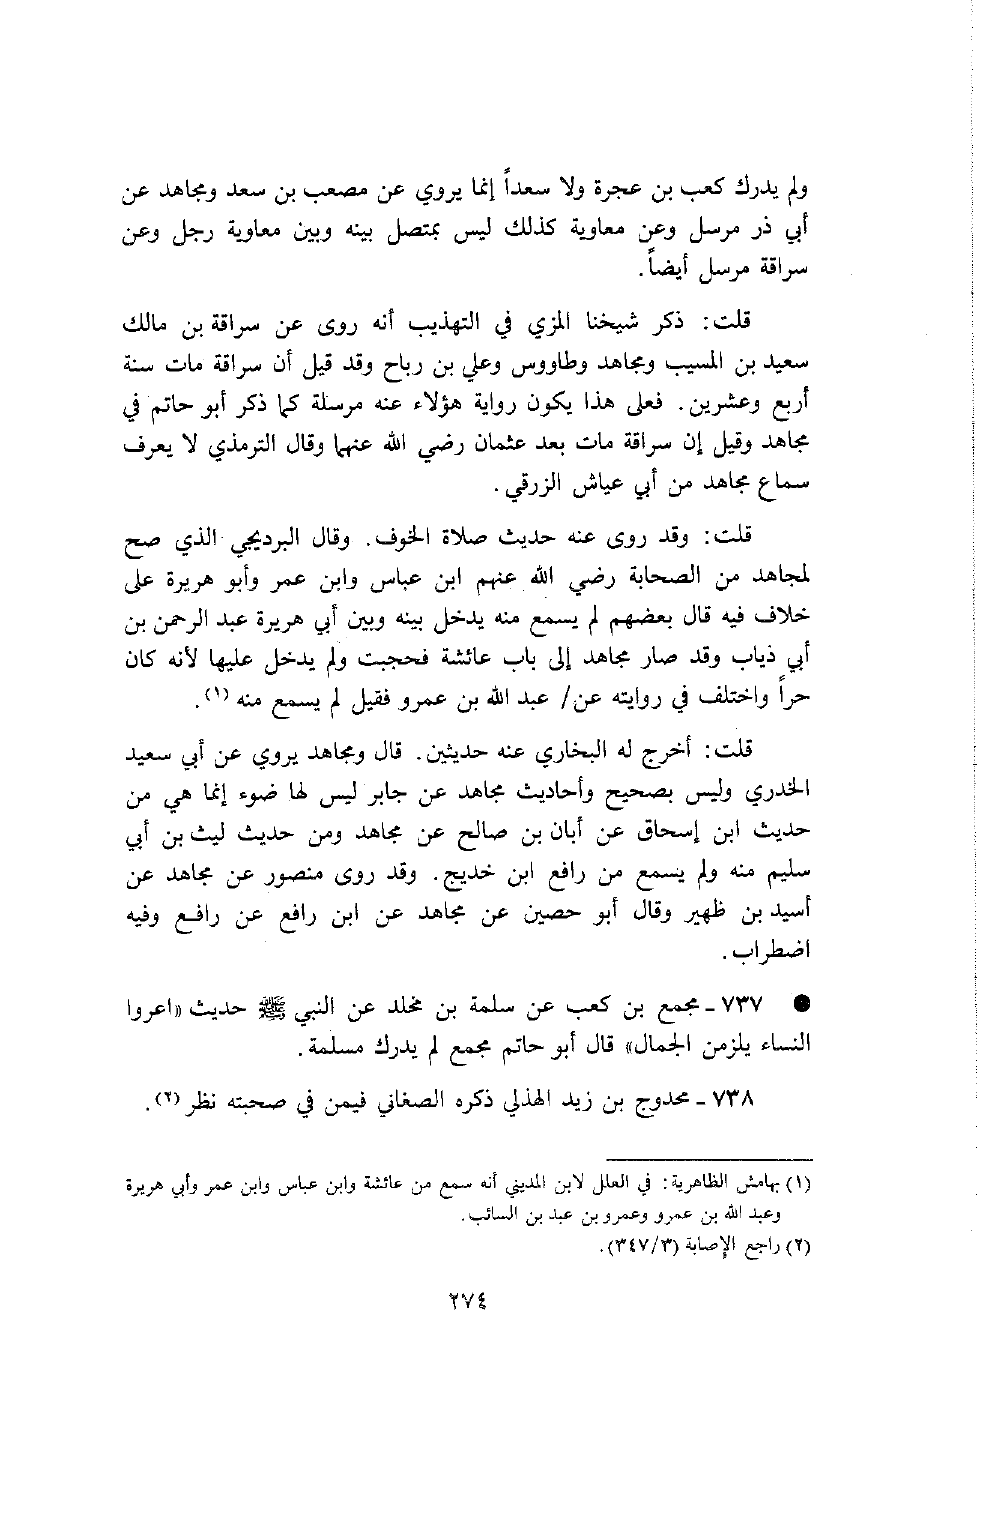 ولم يدرك كعب بن عجرة ولا سعداً إنما يروي عن مصعب بن سعد ومجاهد عن
أبي ذر مرسل وعن معاوية كذلك ليس بمتصل بينه وبين معاوية رجل وعن
سراقة مرسل أيضاً.
قلت: ذكر شيخنا المزي في التهذيب أنه روى عن سراقة بن مالك
سعيد بن المسيب ومجاهد وطاووس وعلي بن رباح وقد قيل أن سراقة مات سنة
أربع وعشرين. فعلى هذا يكون رواية هؤلاء عنه مرسلة كما ذكر أبو حاتم في
مجاهد وقيل إن سراقة مات بعد عثمان رضي الله عنهما وقال الترمذي لا يعرف
سماع مجاهد من أبي عياش الزرقي.
قلت: وقد روى عنه حديث صلاة الخوف. وقال البرديجي الذي صح
لمجاهد من الصحابة رضي الله عنهم ابن عباس وابن عمر وأبو هريرة على
خلاف فيه قال بعضهم لم يسمع منه يدخل بينه وبين أبي هريرة عبد الرحمن بن
أبي ذياب وقد صار مجاهد إلى باب عائشة فحجبت ولم يدخل عليها لأنه كان
حراً واختلف في روايته عن/ عبد الله بن عمرو فقيل لم يسمع منه (١).
قلت: أخرج له البخاري عنه حديثين. قال ومجاهد يروي عن أبي سعيد
الخدري وليس بصحيح وأحاديث مجاهد عن جابر ليس لها ضوء إنما هي من
حديث ابن إسحاق عن أبان بن صالح عن مجاهد ومن حديث ليث بن أبي
سليم منه ولم يسمع من رافع ابن خديج. وقد روى منصور عن مجاهد عن
أسيد بن ظهير وقال أبو حصين عن مجاهد عن ابن رافع عن رافع وفيه
اضطراب.
● ٧٣٧ - مجمع بن كعب عن سلمة بن مخلد عن النبي ﷺ حديث «اعروا
النساء يلزمن الجمال» قال أبو حاتم مجمع لم يدرك مسلمة.
٧٣٨ - محدوج بن زيد الهذلي ذكره الصغاني فيمن في صحبته نظر (٢).
(١) بهامش الظاهرية: في العلل لابن المديني أنه سمع من عائشة وابن عباس وابن عمر وأبي هريرة
وعبد الله بن عمرو وعمرو بن عبد بن السائب.
(٢) راجع الإصابة (٣٤٧/٣).
٢٧٤